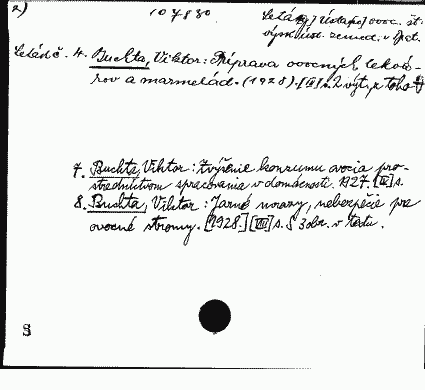 2) 107830 Letáky Ústavu ovoc. št.
výsk. úst. zemed. v Brat.
Leták č. 4. Buchta, Viktor: Príprava ovocných lekvá-
rov a marmelád. (1928). [II] s. 2 výt., z toho
7. Buchta, Viktor: Zvýšenie konzumu ovocia pro-
stredníctvom spracovania v domácnosti. 1927. [IV] s.
8. Buchta, Viktor: Jarné mrazy, nebezpečie pre
ovocné stromy. [1928.] [VIII] s. S 3 obr. v textu.
S